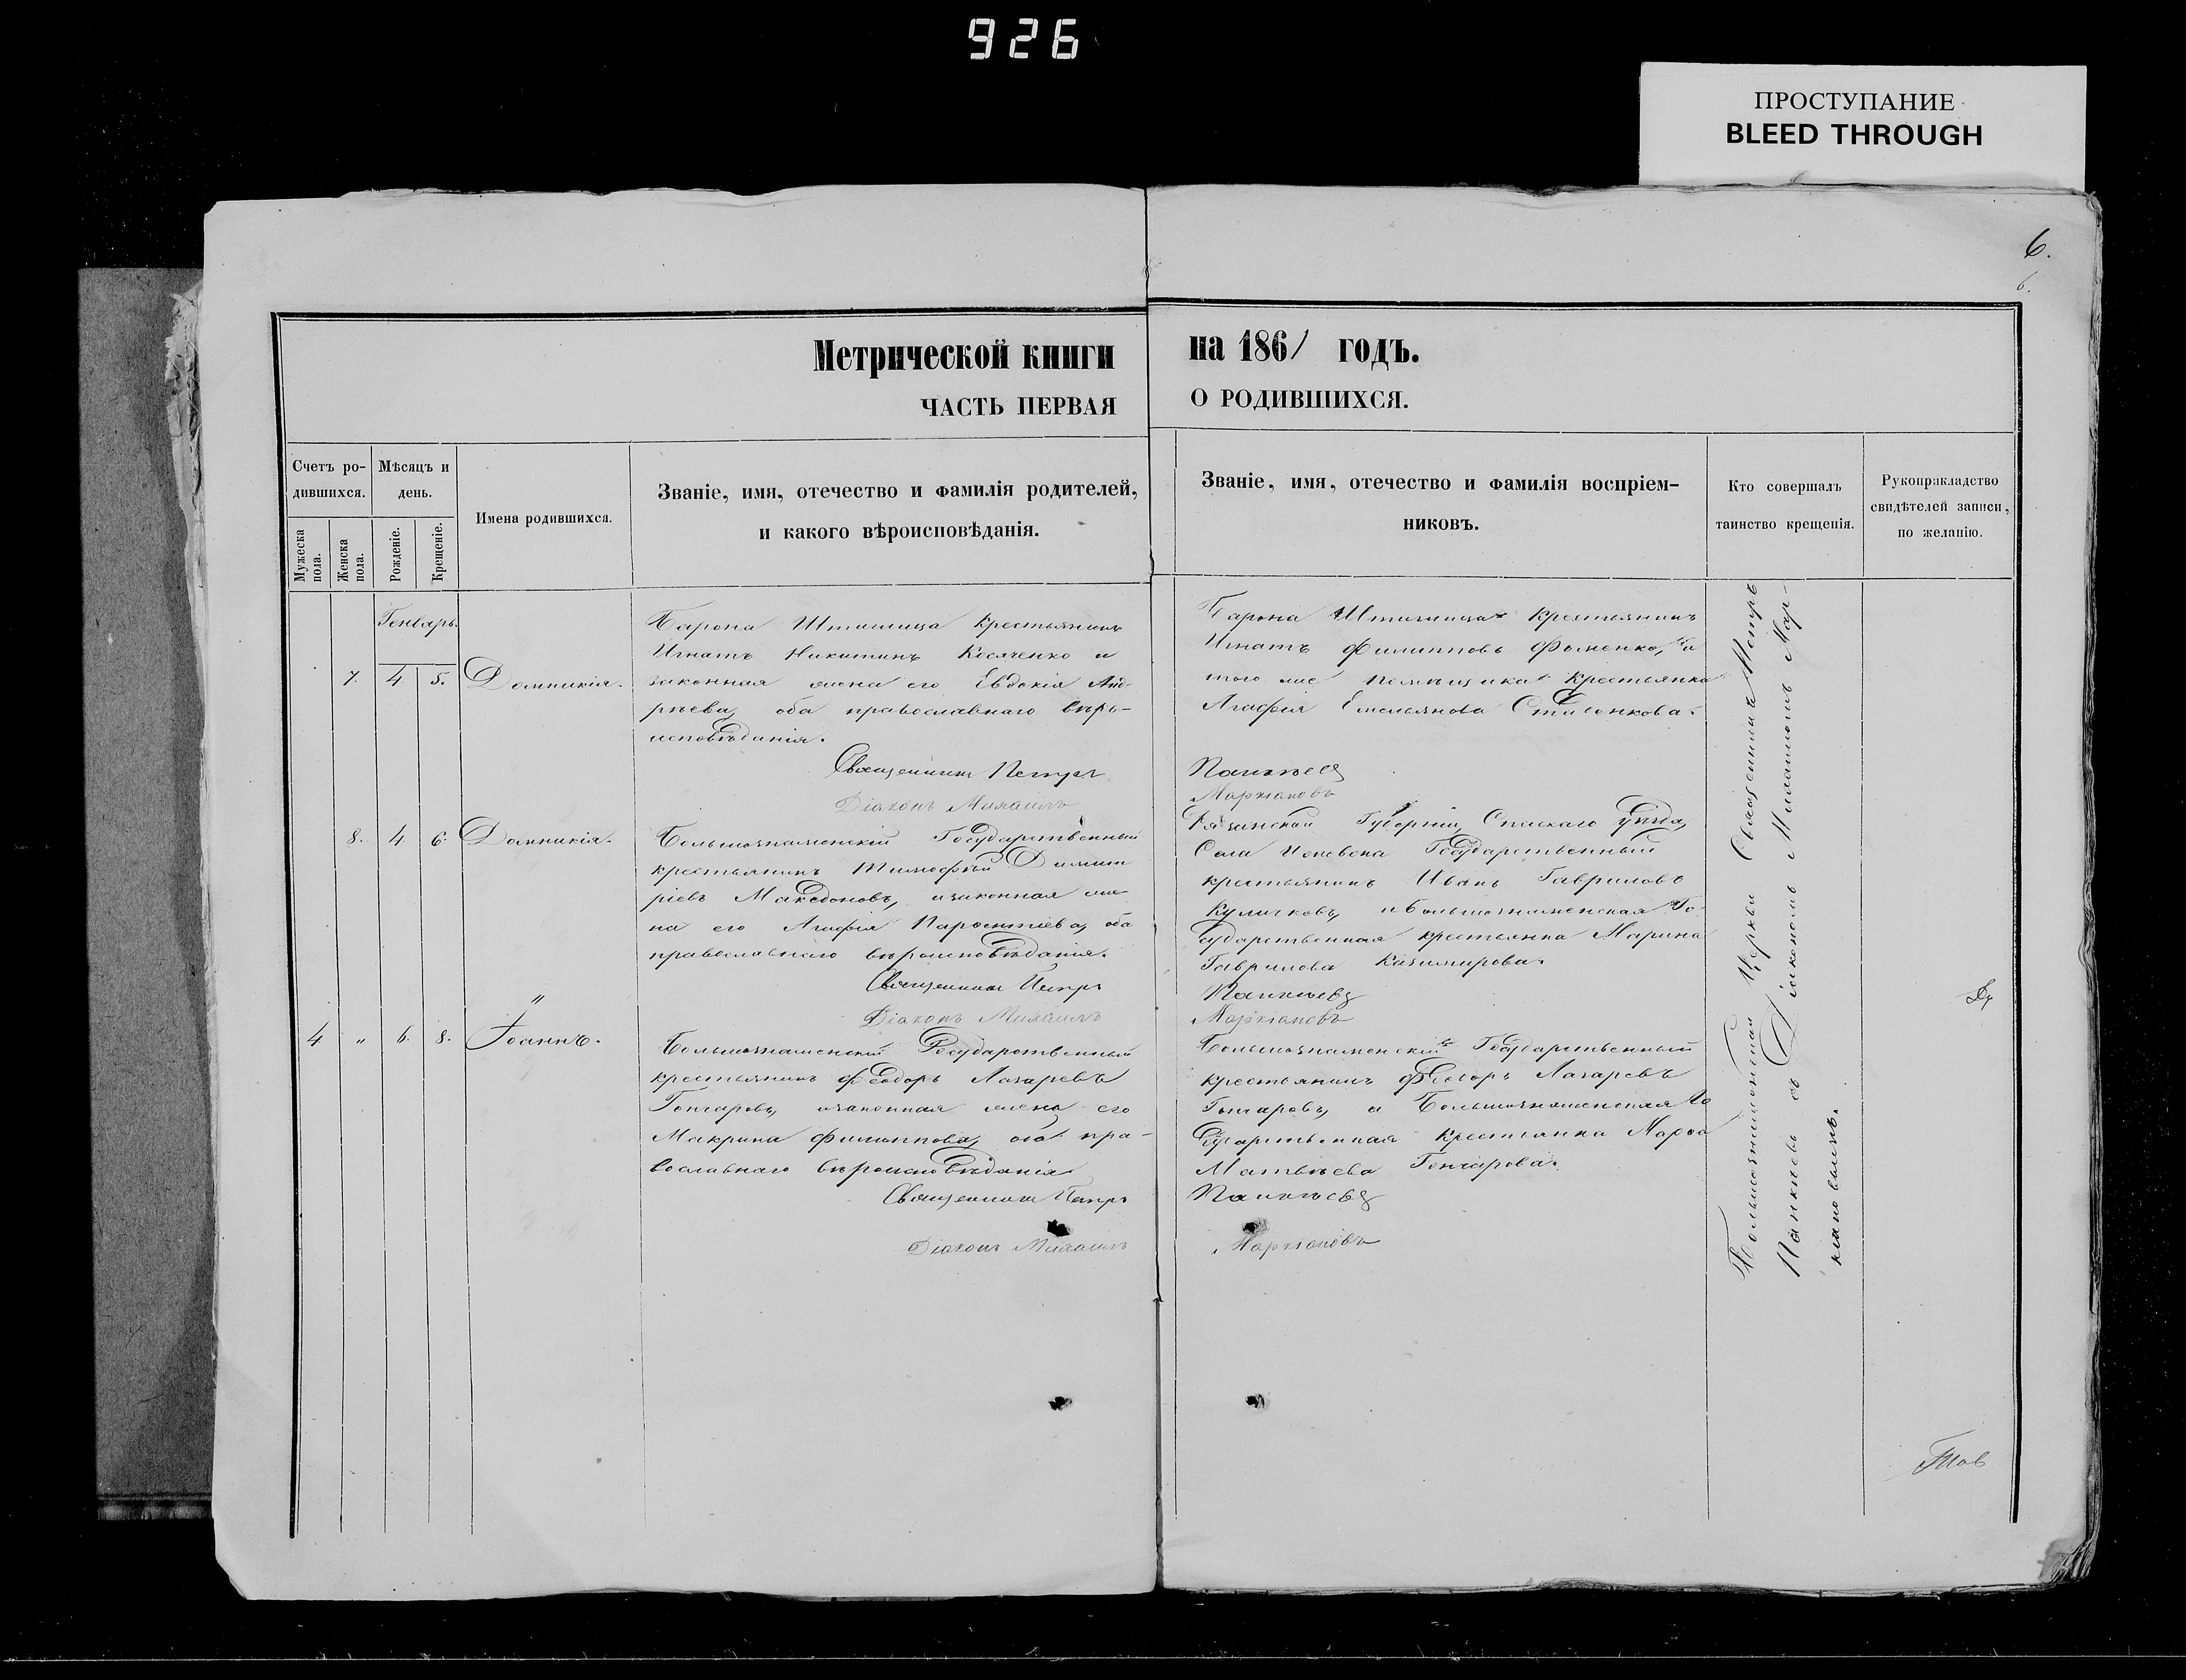 926
ПРОСТУПАНИЕ
BLEED THROUGH
6.
6.
Метрической книги на 1861 годъ.
ЧАСТЬ ПЕРВАЯ О РОДИВШИХСЯ.
Счетъ ро-
дившихся.
Мужеска
пола.
Женска
пола.
Мѣсяцъ и
день.
Рожденіе.
Крещеніе.
Имена родившихся.
Званіе, имя, отечество и фамилія родителей,
и какого вѣроисповѣданія.
Званіе, имя, отечество и фамилія воспріем-
никовъ.
Кто совершалъ
таинство крещенія.
Рукоприкладство
свидѣтелей записи,
по желанію.
Генварь.
7. 4 5. Домникія.
Барона Штиглица крестьянинъ
Игнатъ Никитинъ Косяченко и
законная жена его Евдокія Анд-
рѣева, оба православнаго вѣро-
исповѣданія.
Священникъ Петръ
Діаконъ Михаилъ
Барона Штиглица крестьянинъ
Игнатъ Филипповъ Фоменко, и
того же помѣщика крестьянка
Агафія Емельянова
Панкѣевъ
Маркіановъ
8. 4 6. Домникія.
Большознаменскій Государственный
крестьянинъ Тимофѣй Димит
ріевъ Македоновъ, и законная же
на его Агафія оба
православнаго вѣроисповѣданія.
Священникъ Петръ
Діаконъ Михаилъ
Рязанской Губерніи, Спаскаго уѣзда,
Села Государственный
крестьянинъ Иванъ Гавриловъ
Куличковъ, и Большознаменская Го-
сударственная крестьянка Марина
Гаврилова Казимирова.
Панкѣевъ
Маркіановъ
"
4 " 6. 8. Іоаннъ.
Большознаменскій Государственный
крестьянинъ Феодоръ Лазаревъ
Гончаровъ, и законная жена его
Макрина Филиппова, оба пра-
вославнаго вѣроисповѣданія
Священникъ Петръ
Діаконъ Михаилъ
Большознаменскій Государственный
крестьянинъ Феодоръ Лазаревъ
Гончаровъ, и Большознаменская Го
сударственная крестьянка
Матвѣева Гончарова.
Панкѣевъ
Маркіановъ
Большознаменской Церкви Священникъ Петръ
Панкѣевъ съ Діакономъ Михаиломъ Мар-
кіановымъ.